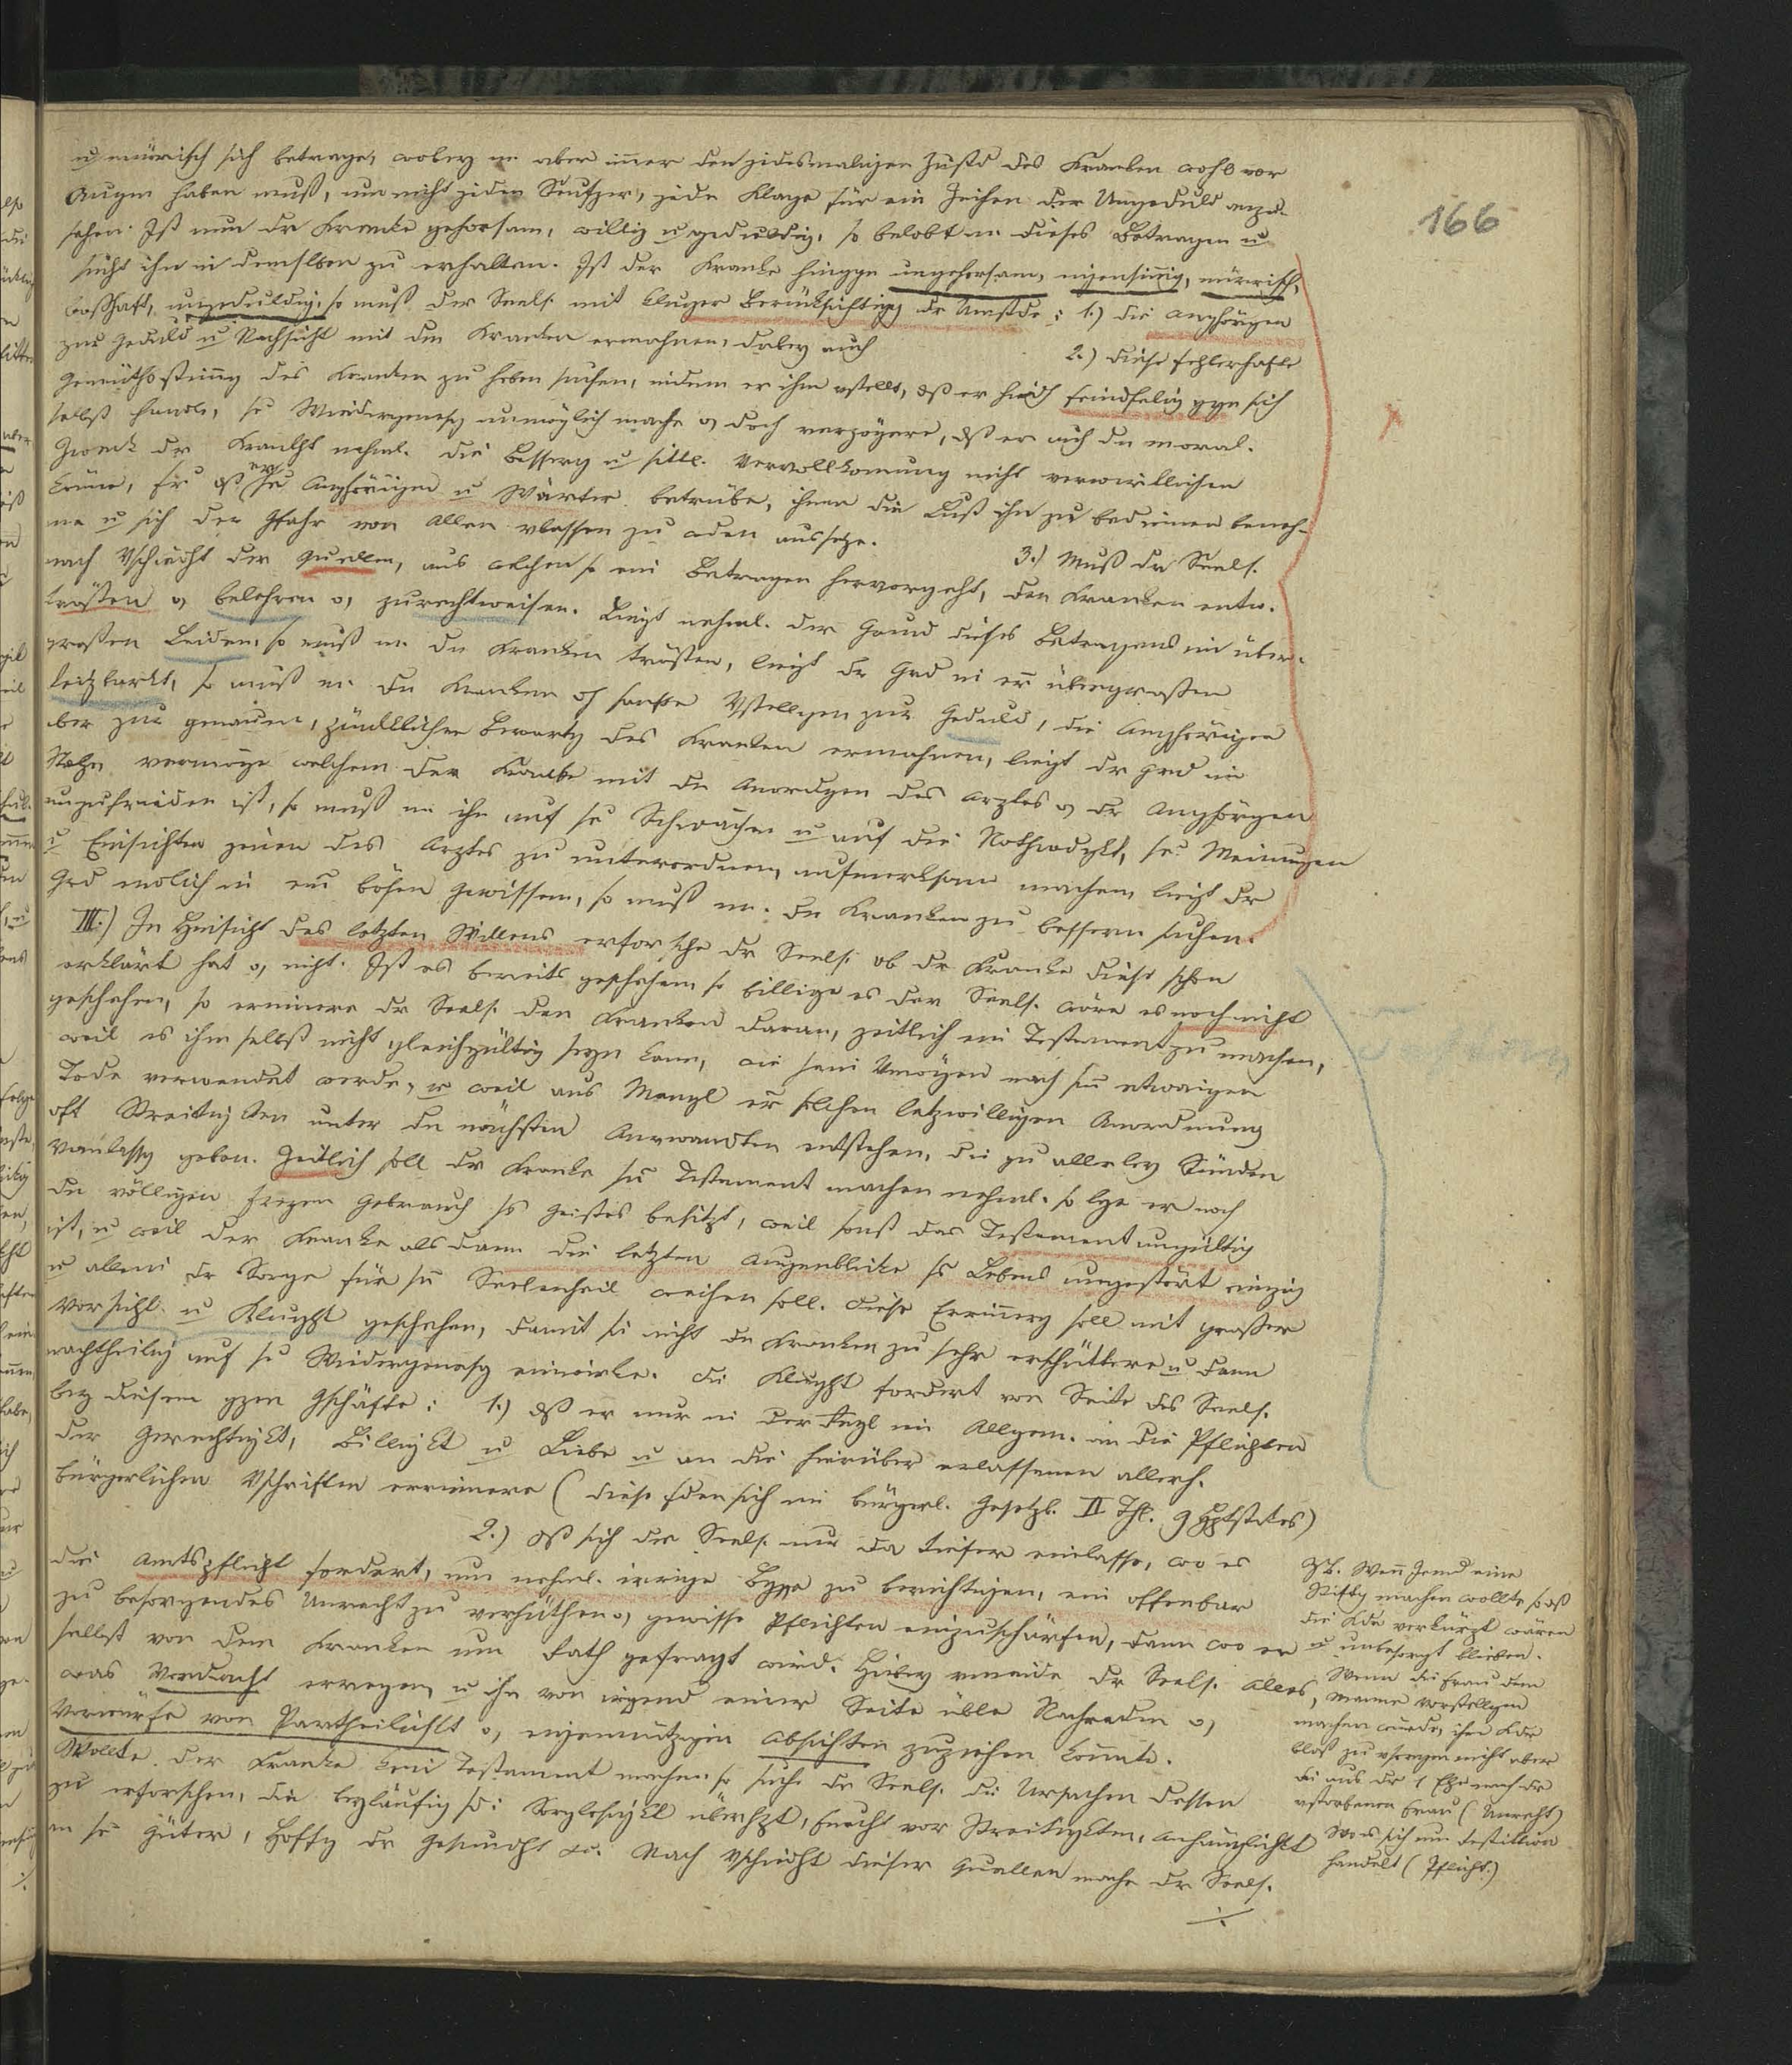 166
u mürrisch sich betrage, wobey m aber imer den jedesmaligen Zustd des Kranken wohl vor
Augen haben muß, um nicht jeden Seufzer, jede Klage für ein Zeichen der Ungeduld anzu-
sehen. Ist nun dr Kranke gehorsam, willig u geduldig, so belobt m dieses Betragen u
sucht ihn in demselben zu erhalten. Ist der Kranke hingge ungehorsam, eigensinig, mürrisch,
boshaft, ungeduldig, so muß der Seels. mit kluger Berücksichtigg dr Umstde: 1.) die Anghörigen
zur Geduld u Nachsicht mit dem Kranken ermahnen, dabey auch
2.) diese fehlerhafte
Gemüthsstimg des Kranken zu heben suchen, indem er ihm vstellt, dß er hiedch feindselig ggn sich
selbst handle, se Wiedergenesg unmöglich mache o, doch verzögere, dß er auch den moral.
Zweck dr Krankht nehml. die Besserg u sittl. Vervollkomnung nicht verwirklichen
köne, dß er se Anghörigen u Wärter betrübe, ihnen die Lust ihn zu bedienen beneh-
me u sich der Gfahr von Allen vlassen zu wden aussetze.
3.) Muß dr Seels.
nach Vschiedht der Quellen, aus welchen so ein Betragen hervorgeht, den Kranken entw.
trösten o, belehren o, zurechtweisen. Liegt nehml. der Grund dieses Betragens in über-
großen Leiden, so muß m den Kranken trösten, liegt dr Grd in er übergroßen
Reitzbarkt, so muß m den Kranken dch sanfte Vstellgen zur Geduld, die Anghörigen
aber zur genauen, pünktlichen Bewartg des Kranken ermahnen, liegt dr Grd im
Stolze, vermöge welchem der Kranke mit den Anordgen des Arztes o, dr Anghörigen
unzufrieden ist, so muß m ihn auf se Schwächen u auf die Nothwdgkt, se Meinungen
u Einsichten jenen des Arztes zu unterordnen, aufmerksam machen, liegt dr
Grd endlich in em bösen Gewissen, so muß m den Kranken zu bessern suchen.
III.) In Hinsicht des letzten Willens erforsche dr Seels. ob dr Kranke diese schon
erklärt hat o, nicht. Ist es bereits geschehen so billige es der Seels. wäre es noch nicht
geschehen, so erinnere dr Seels. den Kranken daran, zeitlich ein Testament zu machen,
weil es ihm selbst nicht gleichgültig seyn kann, wie sein Vmögen nach sm etwaigen
Tode verwendet werde, u weil aus Mangl er solchen letzwilligen Anordnung
oft Streitigkten unter den nächsten Anvwandten entstehen, die zu allerley Sünden
Vanlassg geben. Zeitlich soll dr Kranke sn Testament machen nehml. so lge er noch
den völligen freyen Gebrauch ss Geistes besitzt, weil sonst das Testament ungültig
ist, u weil der Kranke alsdann die letzten Augenblicke ss Lebens ungestört einzig
u allein dr Sorge für sn Seelenheil weihen soll. Diese Erinnerg soll mit großer
Vorsicht u Klught geschehen, damit sie nicht den Kranken zu sehr erschüttere u dann
nachtheilig auf se Wiedergenesg einwirke. Die Klught fordert von Seite des Seels.
bey diesem gzen Gschäfte: 1.) dß er nur in der Regl im Allgem. an die Pflichten
der Gerechtigkt, Billigkt u Liebe u an die hierüber erlassenen allerh.
bürgerlichen Vschriften erinnere (diese fden sich im bürgerl. Gesetzb. II Thl. 9 Hptstckes)
2.) dß sich der Seels. nur da tiefer einlasse, wo es
die Amtspflicht fordert, um nehml. irrige Bgffe zu berichtigen, ein offenbar
zu besorgendes Unrecht zu verhüthen o, gewisse Pflichten einzuschärfen, dann wo er
selbst von dem Kranken um Rath gefragt wird. Hiebey vmeide dr Seels. alles,
was Verdacht erregen, u ihn von irgend einer Seite üble Nachreden o,
Vorwürfe von Partheilichkt o, eigennützigen Absichten zuziehen könnte.
Wollte der Kranke kein Testament machen so suche dr Seels. die Ursachen dessen
zu erforschen, die beyläufig sd: Sorglosigkt überhpt, Furcht vor Streitigkten, Anhänglichkt
an se Güter, Hoffg dr Gesundht etc. Nach Vschiedht dieser Quellen mache dr Seels.
./.
ZB. Wenn Jemd eine
Stiftg machen wollte so dß
die Kdr verkürzt wären
u unbesorgt blieben.
Wenn die Frau dem
Manne Vorstellgen
machen würde, ihre Kdr
bloß zu vsorgen nicht aber
die aus dr 1 Ehe nach dr
vstorbenen Frau (Unrecht)
Wo es sich um Restitution
handelt (Pflicht.)